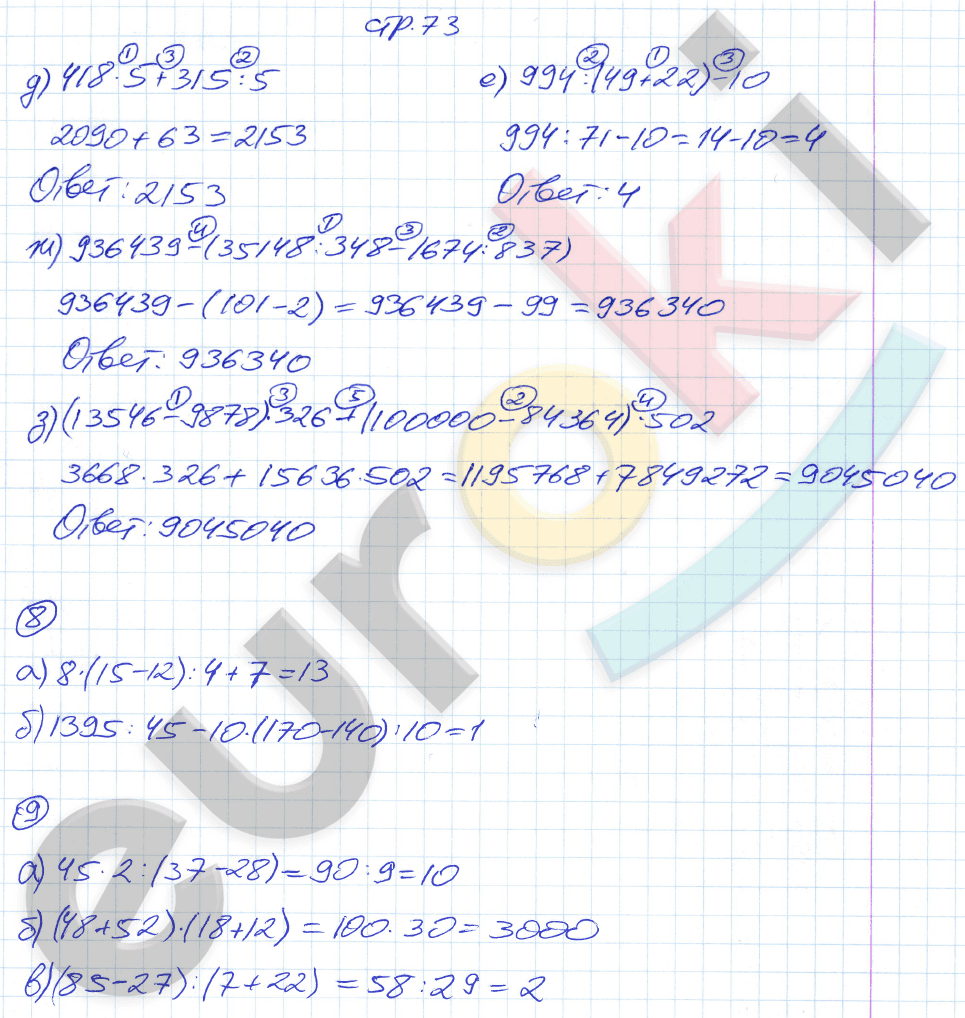 стр. 73
д) 418·5+315:5
① ③ ②
2090+63=2153
Ответ: 2153
е) 994:(49+22)-10
② ① ③
994:71-10=14-10=4
Ответ: 4
ж) 936439-(35148:348-1674:837)
④ ① ③ ②
936439-(101-2)=936439-99=936340
Ответ: 936340
з) (13546-9878)·326+(100000-84364)·502
① ③ ⑤ ② ④
3668·326+15636·502=1195768+7849272=9045040
Ответ: 9045040
⑧
а) 8·(15-12):4+7=13
б) 1395:45-10·(170-140):10=1
⑨
а) 45·2:(37-28)=90:9=10
б) (48+52)·(18+12)=100·30=3000
в) (85-27):(7+22)=58:29=2
euroki